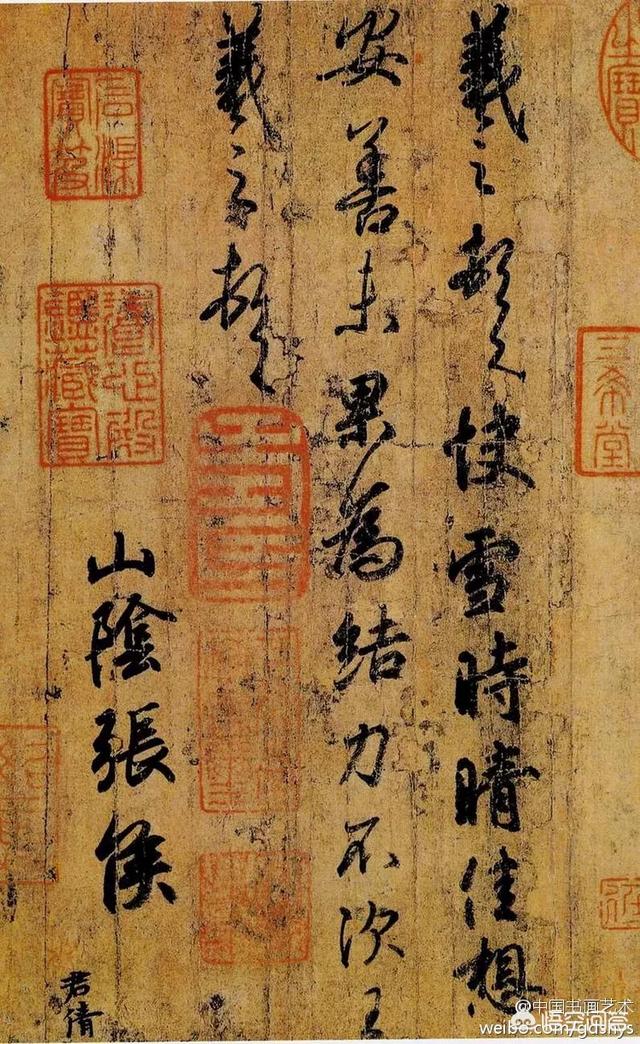 羲之頓首快雪時晴佳想
安善未果為結力不次王
羲之頓首
山陰張侯
君倩
三希堂
@中国书画艺术
悟空问答
weibo.com/gdshys